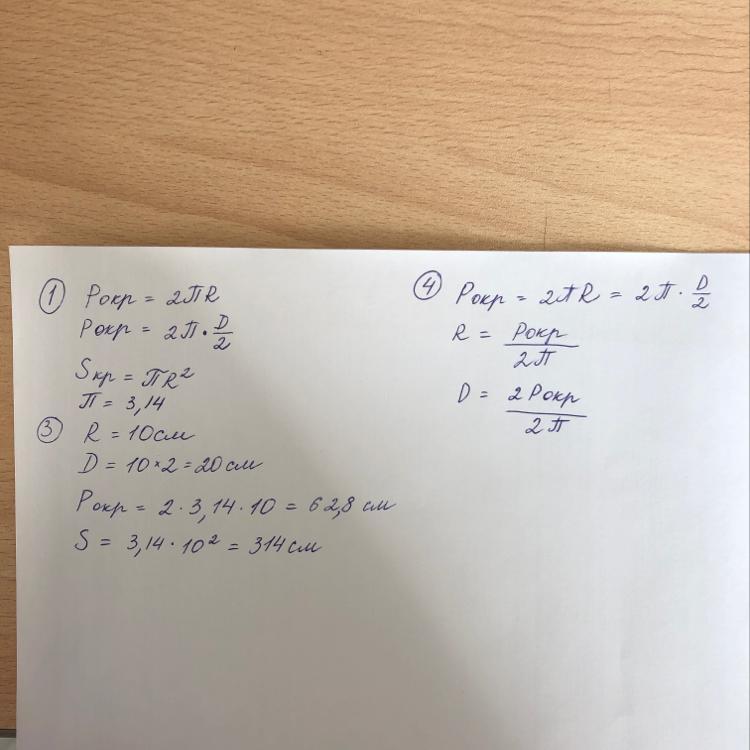 ① Pокр = 2ПR
Pокр = 2П · D/2
Sкр = ПR²
П = 3,14
③ R = 10см
D = 10×2 = 20см
Pокр = 2 · 3,14 · 10 = 62,8 см
S = 3,14 · 10² = 314см
④ Pокр = 2ПR = 2П · D/2
R = Pокр/2П
D = 2Pокр/2П